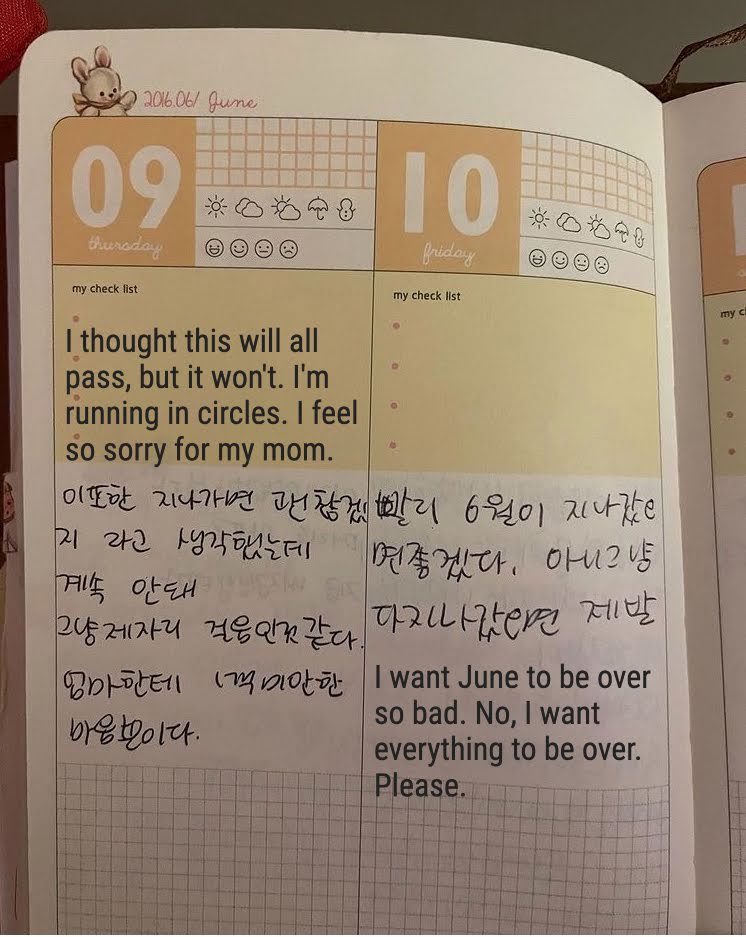 2016.06/ June
09
thursday
my check list
I thought this will all
pass, but it won't. I'm
running in circles. I feel
so sorry for my mom.
이또한 지나가면 괜찮겠
지 라고 생각했는데
계속 안돼
그냥제자리 걸음인것같다.
엄마한테 미안한
마음뿐이다.
10
friday
my check list
빨리 6월이 지나갔으
면좋겠다. 아니그냥
다지나갔으면 제발
I want June to be over
so bad. No, I want
everything to be over.
Please.